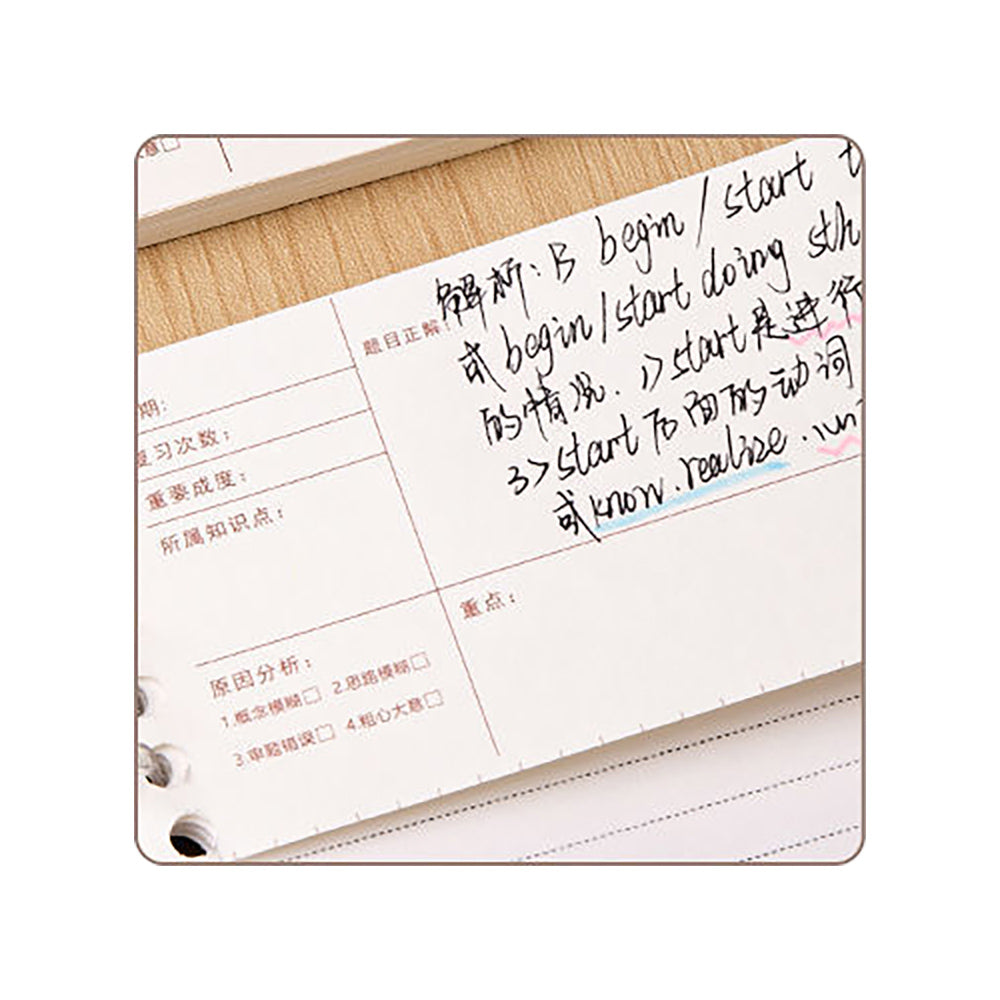 意□
解析：B begin / start t
题目正解：
或 begin / start doing sth
的情况. 1> start 是进行
3> start 后面的动词
或 know. realize.
期：
复习次数：
重要成度：
所属知识点：
重点：
原因分析：
1.概念模糊□ 2.思路模糊□
3.审题错误□ 4.粗心大意□